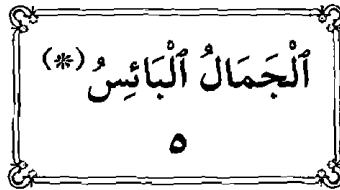 ٱلْجَمَالُ ٱلْبَائِسُ (*)
٥